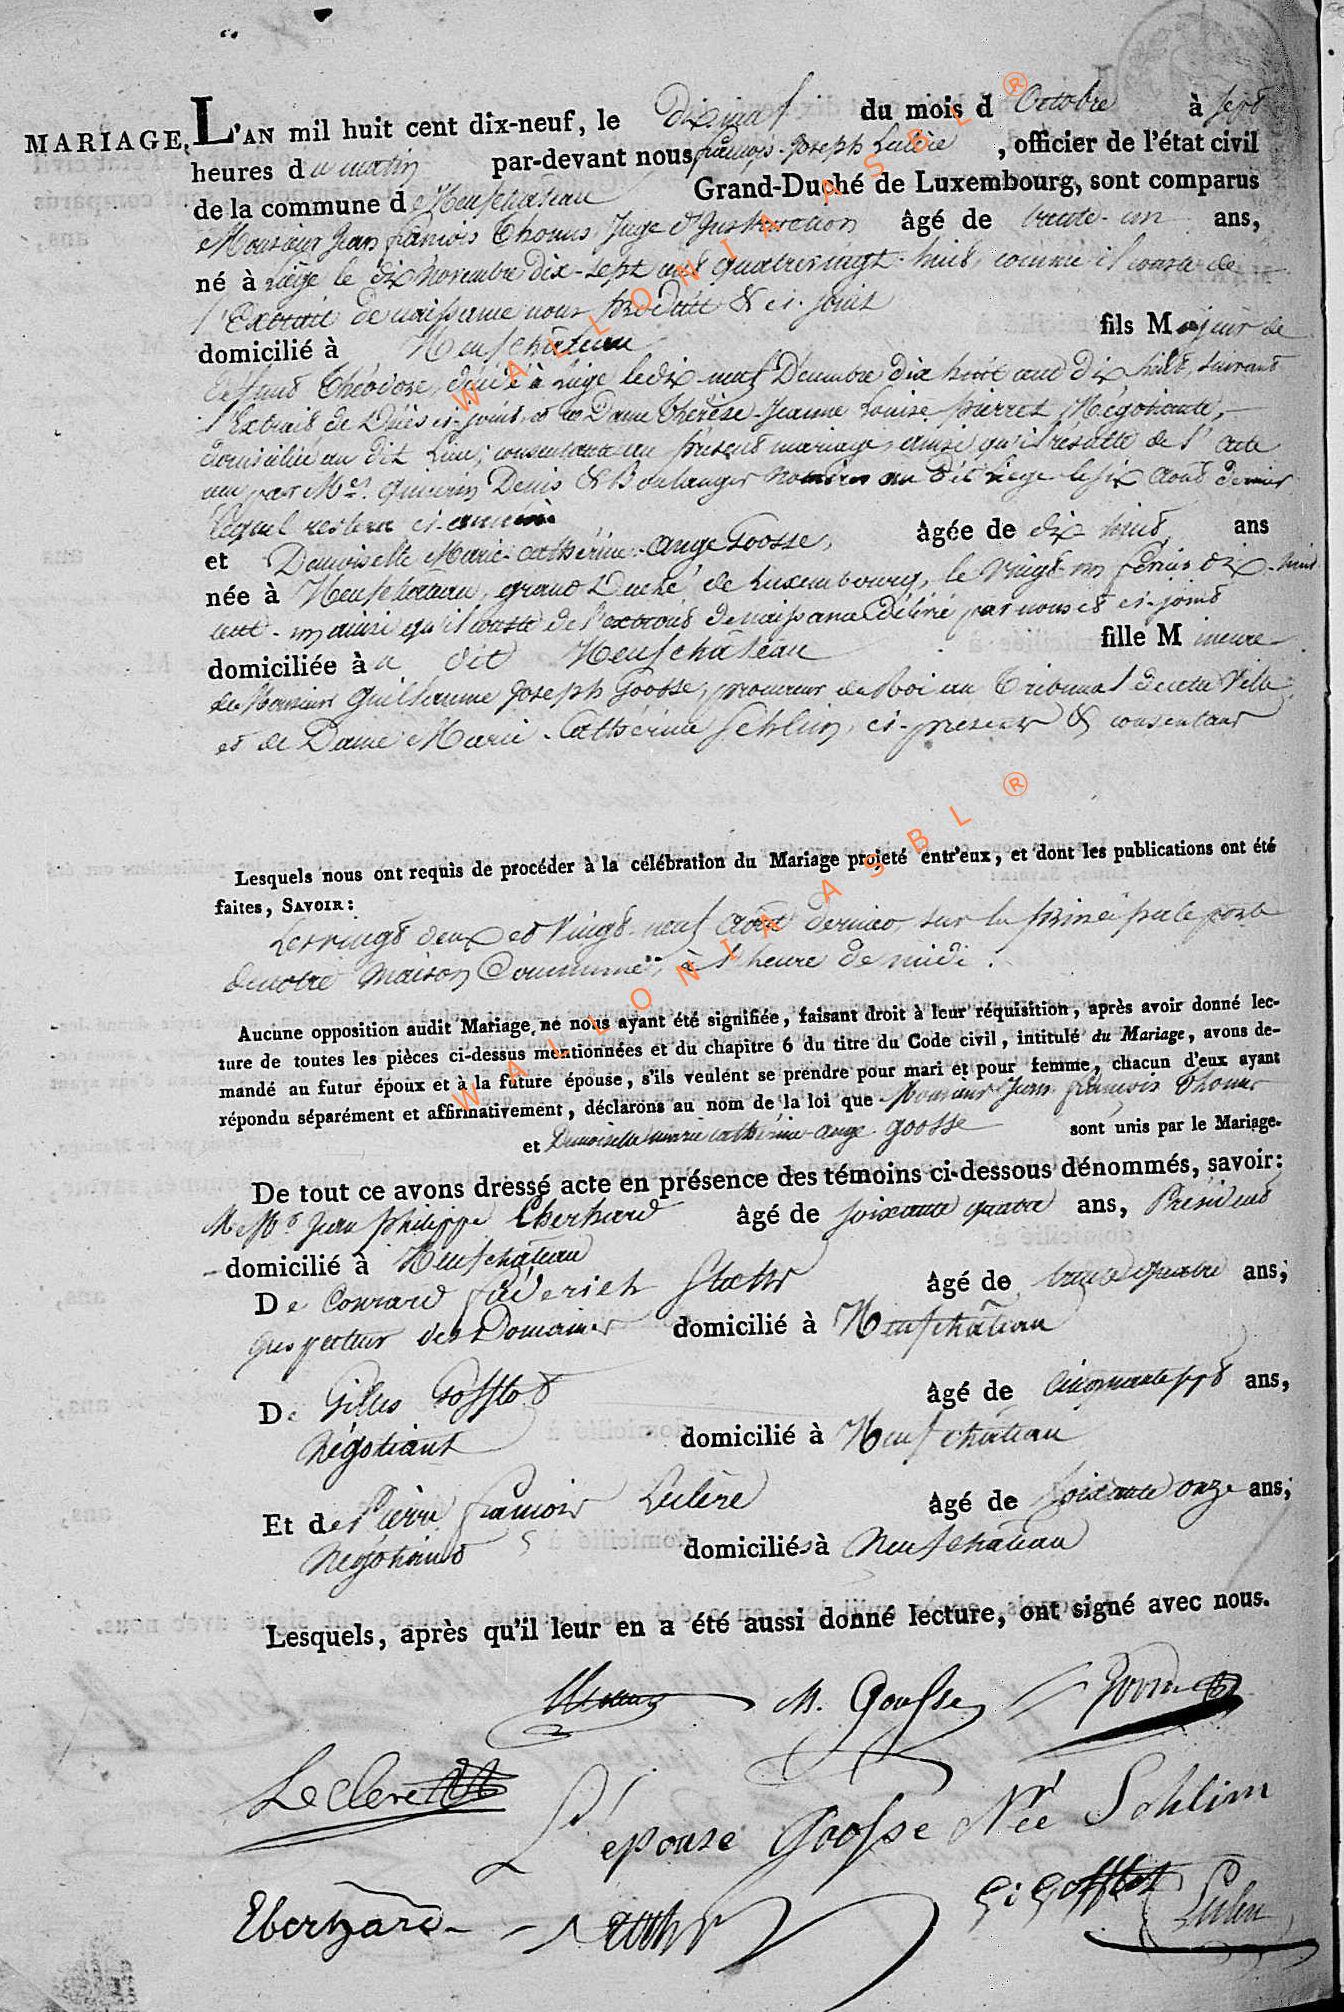 MARIAGE.
L'AN mil huit cent dix-neuf, le Dix neuf du mois d'Octobre à sept
heures du matin par-devant nous françois Joseph Leclère, officier de l'état civil
de la commune de Neufchâteau Grand-Duché de Luxembourg, sont comparus
Monsieur Jean françois Thonus, Juge d'Instruction âgé de trente-un ans,
né à Liège le dix Novembre dix-sept cent quatrevingt-huit, comme il conste de
l'Extrait de naissance nous produit & ci-joint
domicilié à Neufchâteau fils Majeur de
defunt Théodore, décédé à Liège le dix-neuf Décembre dix huit cent dix huit, suivant
l'Extrait de Décès ci-joint, et de Dame Thérèse-Jeanne Louise pierret, Négotiante,
domiciliée au dit Lieu, consentante au présent mariage, ainsi qu'il résulte de l'acte
reçu par Mes. Guérin Denis & Boulanger Notaires au dit Liège le six Août dernier
lequel restera ci-annéxé
et Demoiselle Marie-Cathérine-Ange Goosse, âgée de dix huit ans
née à Neufchâteau, grand Duché de Luxembourg, le vingt-un fénier dix-huit
cent-un ainsi qu'il conste de l'extrait de naissance délivré par nous et ci-joint
domiciliée à u dit Neufchâteau fille Mineure
de Monsieur Guillaume Joseph Goosse, procureur du Roi au Tribunal de cette Ville
et de Dame Marie-Cathérine Schlim, ci-present & consentant
Lesquels nous ont requis de procéder à la célébration du Mariage projeté entr'eux, et dont les publications ont été
faites, SAVOIR:
Les vingt deux et Vingt-neuf Août dernier, sur la principale porte
de notre Maison Commune, à l'heure de midi.
Aucune opposition audit Mariage ne nous ayant été signifiée, faisant droit à leur réquisition, après avoir donné lec-
ture de toutes les pièces ci-dessus mentionnées et du chapitre 6 du titre du Code civil, intitulé du Mariage, avons de-
mandé au futur époux et à la future épouse, s'ils veulent se prendre pour mari et pour femme, chacun d'eux ayant
répondu séparément et affirmativement, déclarons au nom de la loi que Monsieur Jean françois Thonus
et Demoiselle marie cathérine-ange goosse sont unis par le Mariage.
De tout ce avons dressé acte en présence des témoins ci-dessous dénommés, savoir:
De Mr. Jean philippe Eberhard âgé de soixante quatre ans, Président
domicilié à Neufchâteau
De Conrard fréderich Stoehr âgé de trente quatre ans,
Inspecteur des Domaines domicilié à Neufchâteau
De Gilles Gofflot âgé de cinquante sept ans,
Négotiant domicilié à Neufchâteau
Et de Pierre françois Leclère âgé de soixante onze ans,
Négotiant domiciliés à Neufchâteau
Lesquels, après qu'il leur en a été aussi donné lecture, ont signé avec nous.
M. Goosse
Leclere
L'épouse Goosse Née Schlim
Eberhard
G: Gofflot
WALLONIA ASBL ®
WALLONIA ASBL ®